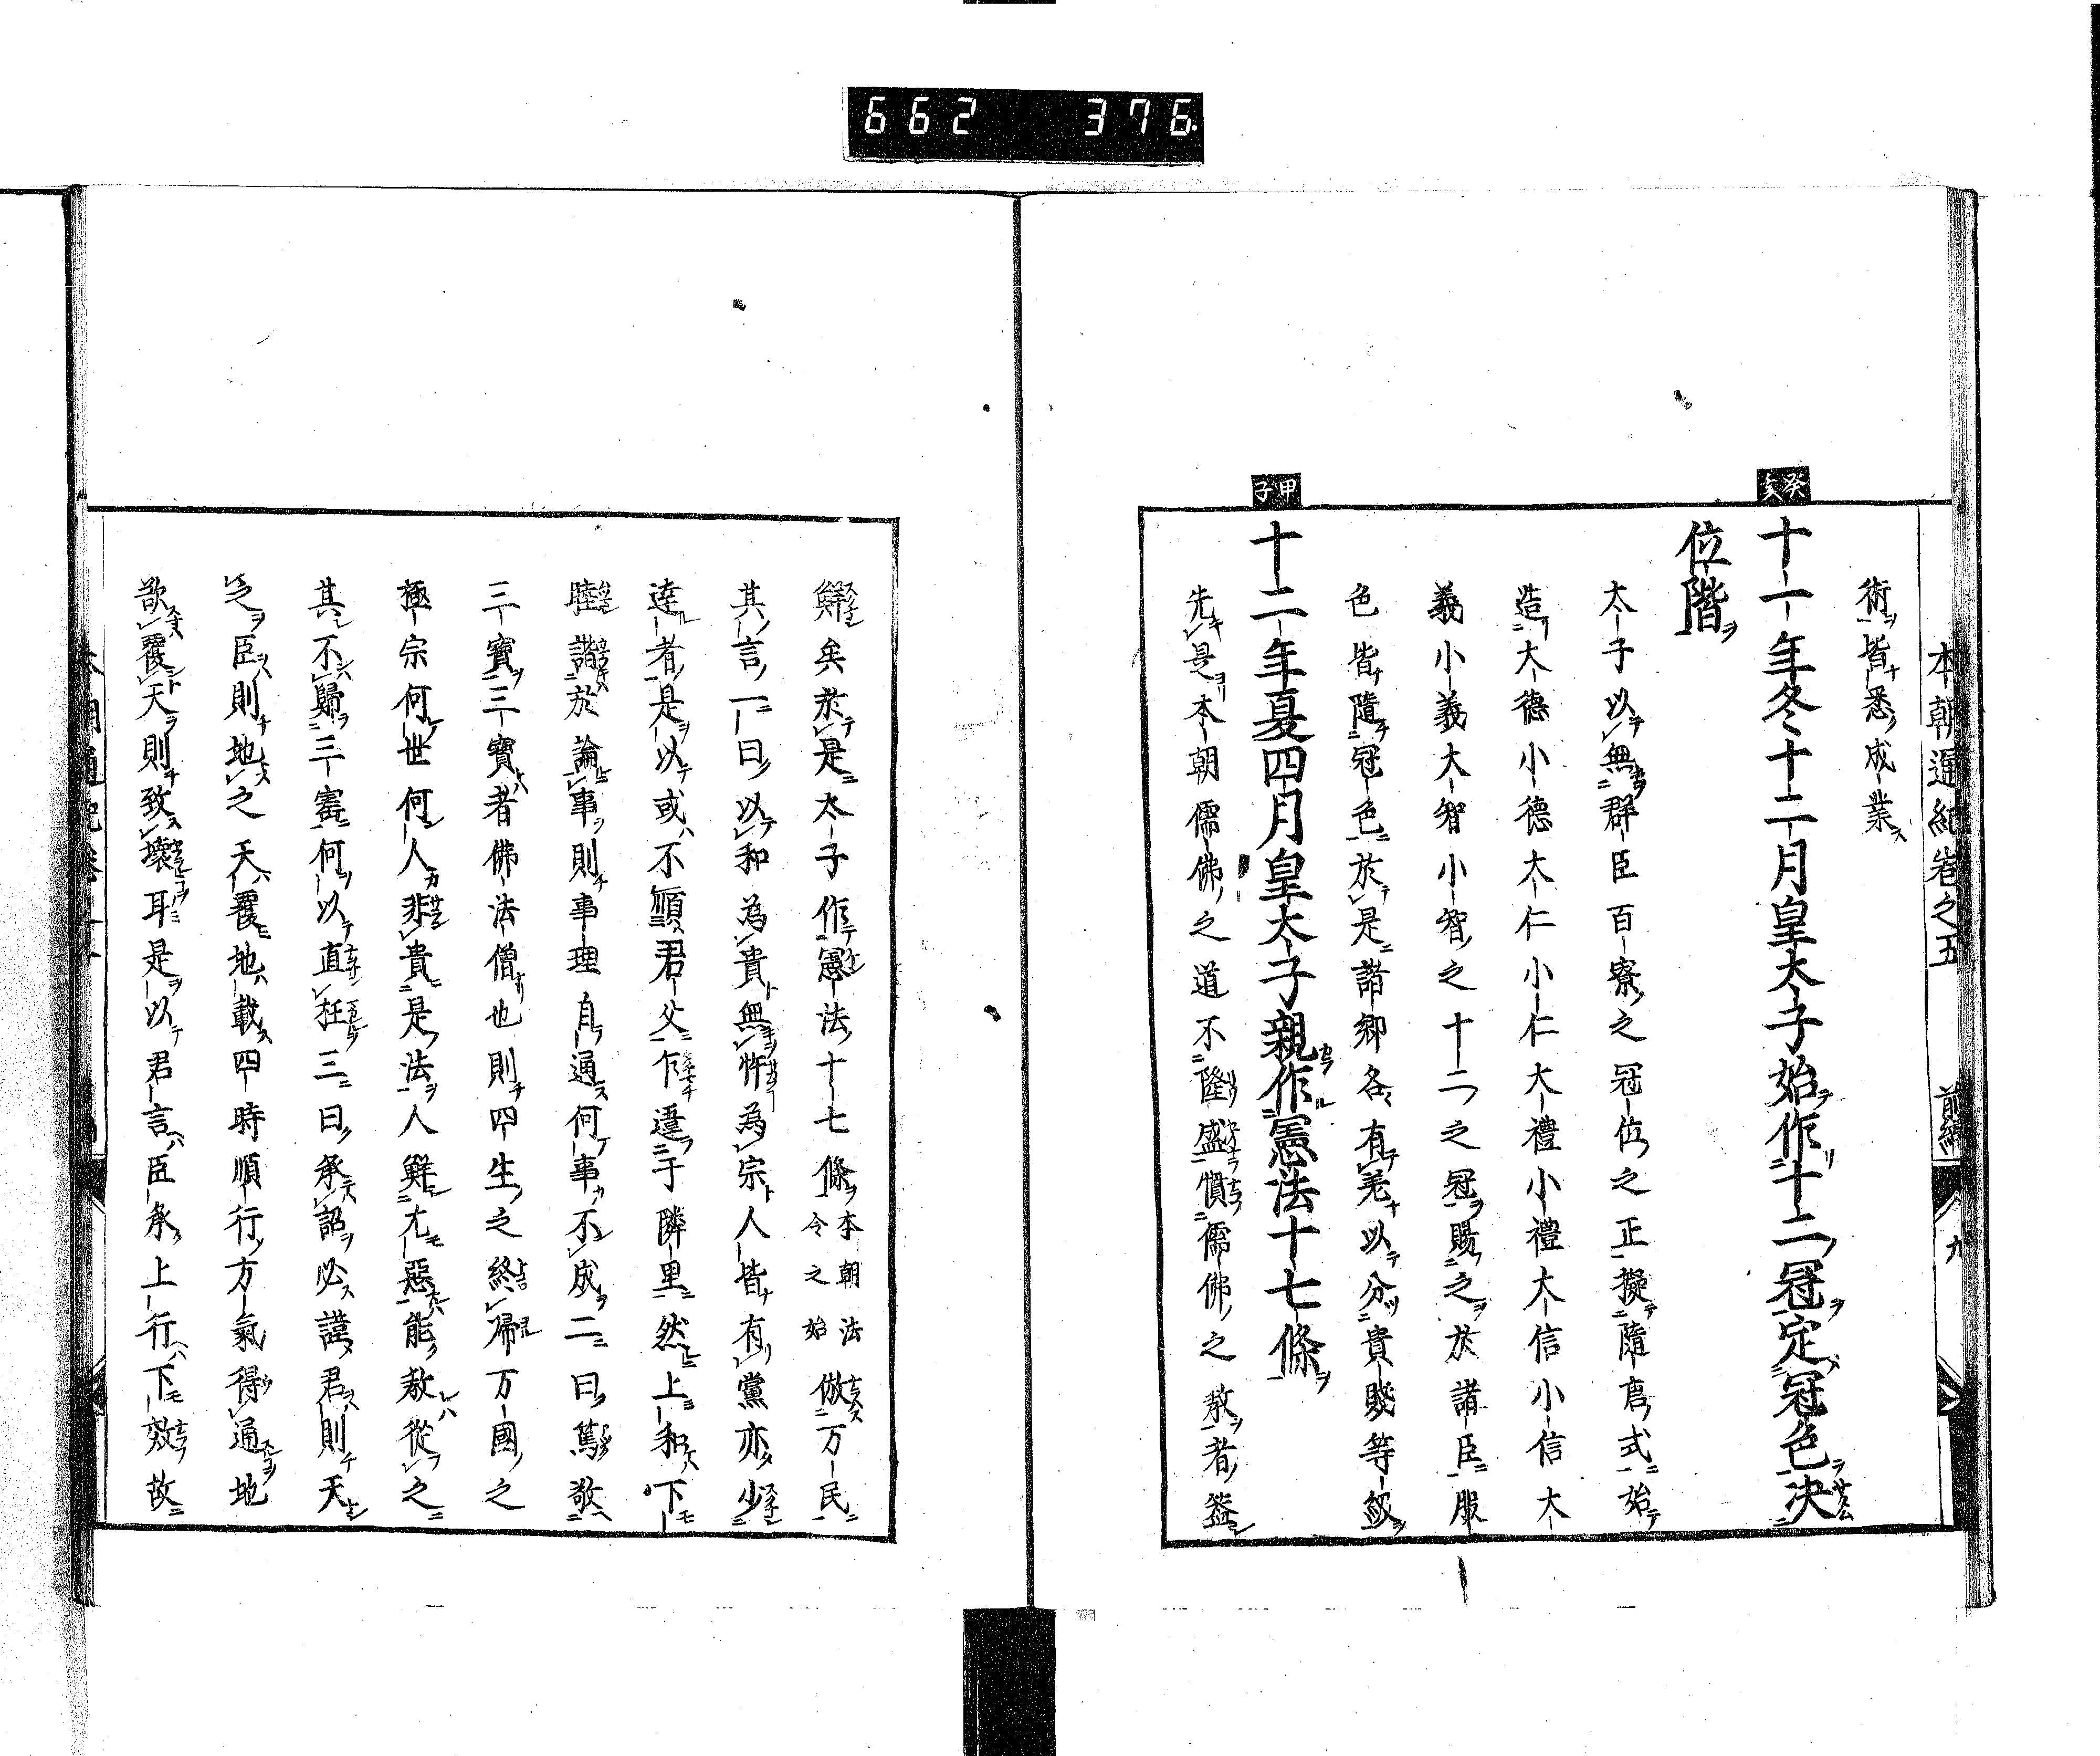 662 376
本朝通紀卷之五 前編 九
術皆悉成業
癸亥
十一年冬十二月皇太子始作十二冠定冠色决
位階
太子以無群臣百寮之冠位之正擬隋唐式始
造大德小德大仁小仁大禮小禮大信小信大
義小義大智小智之十二之冠賜之於諸臣服
色皆隨冠色於是諸卿各有差以分貴賤等級
甲子
十二年夏四月皇太子親作憲法十七條
先是本朝儒佛之道不隆盛慣儒佛之教者盖
鮮矣於是太子作憲法十七條本朝法令之始倣万民
其言一曰以和為貴無忤為宗人皆有黨亦少
達者是以或不順君父乍違于隣里然上和下
睦諧於論事則事理自通何事不成二曰篤敬
三寶三寶者佛法僧也則四生之終歸万國之
極宗何世何人非貴是法人鮮尤惡能教從之
其不歸三寳何以直枉三曰承詔必謹君則天
之臣則地之天覆地載四時順行方氣得通地
欲覆天則致壞耳是以君言臣承上行下效故